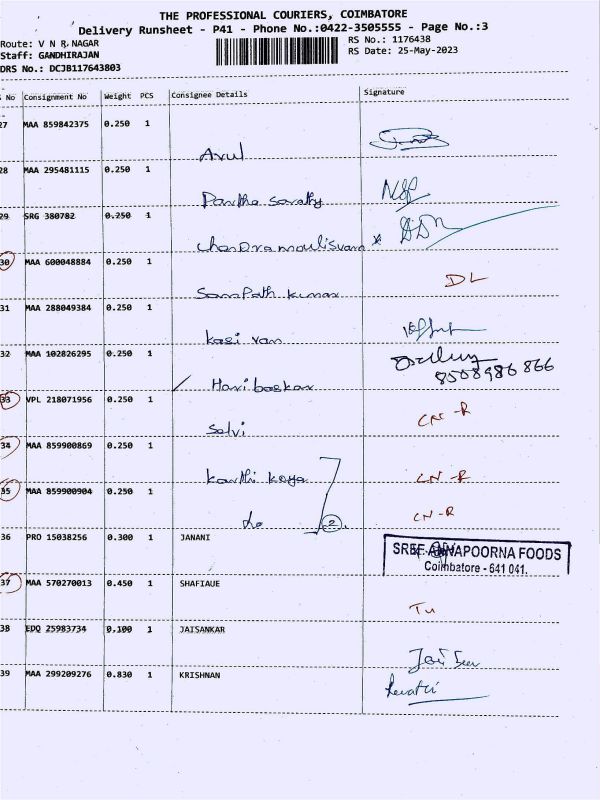 THE PROFESSIONAL COURIERS, COIMBATORE
Delivery Runsheet - P41 - Phone No.:0422-3505555 - Page No.:3
Route: V N R NAGAR
RS No.: 1176438
Staff: GANDHIRAJAN
RS Date: 25-May-2023
DRS No.: DCJB117643803
No Consignment No Weight PCS Consignee Details Signature
27 MAA 859842375 0.250 1
Arul
28 MAA 295481115 0.250 1
Partha sarathy
29 SRG 380782 0.250 1
chandramoulisvaran
30 MAA 600048884 0.250 1
Sampath kumar DL
31 MAA 288049384 0.250 1
kasi van
32 MAA 102826295 0.250 1
Hari baskar 8508986866
33 VPL 218071956 0.250 1
Selvi CN-R
34 MAA 859900869 0.250 1
Karthi Kaya CN-R
35 MAA 859900904 0.250 1
do 2 CN-R
36 PRO 15038256 0.300 1 JANANI
SREE ANNAPOORNA FOODS
Coimbatore - 641 041.
37 MAA 570270013 0.450 1 SHAFIAUE
38 EDQ 25983734 0.100 1 JAISANKAR
39 MAA 299209276 0.830 1 KRISHNAN
Revathi